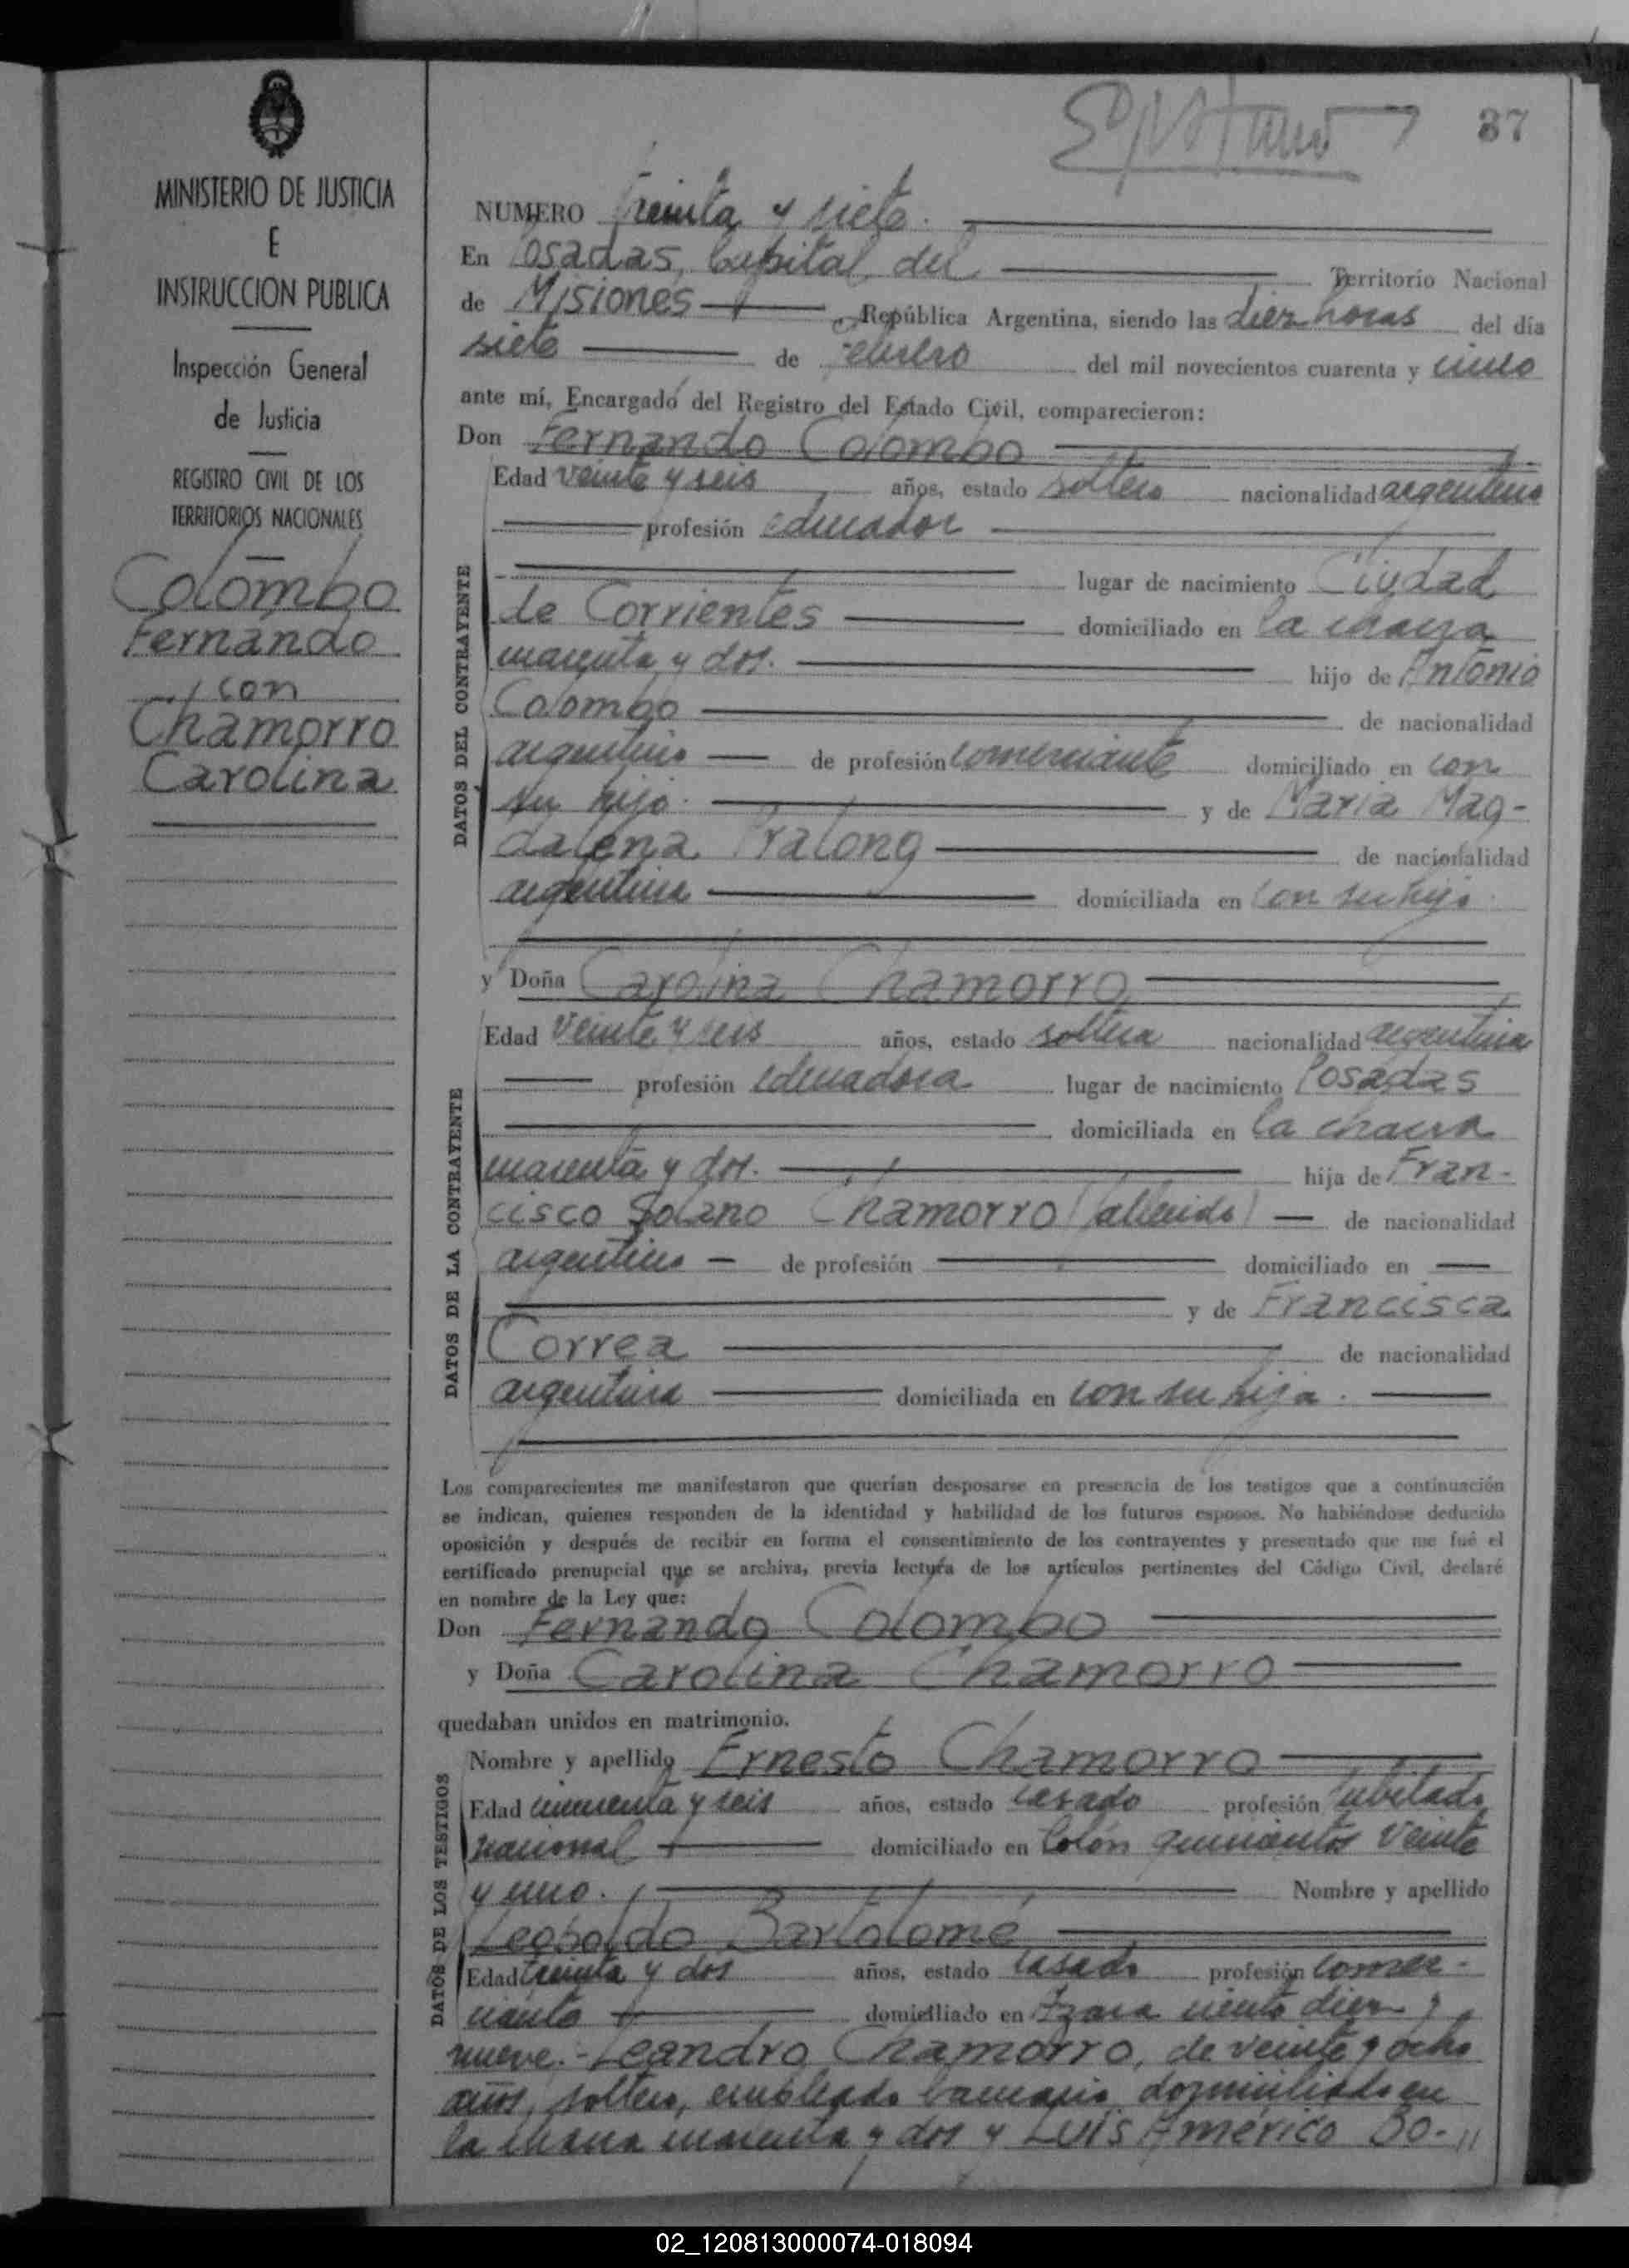 MINISTERIO DE JUSTICIA
E
INSTRUCCION PUBLICA
Inspección General
de Justicia
REGISTRO CIVIL DE LOS
TERRITORIOS NACIONALES
Colombo
Fernando
con
Chamorro
Carolina
37
NUMERO treinta y siete.
En Posadas, Capital del Territorio Nacional
de Misiones República Argentina, siendo las diez horas del día
siete de Febrero del mil novecientos cuarenta y cinco
ante mí, Encargado del Registro del Estado Civil, comparecieron:
Don Fernando Colombo
Edad veinte y seis años, estado soltero nacionalidad argentino
profesión educador
DATOS DEL CONTRAYENTE
lugar de nacimiento Ciudad
de Corrientes domiciliado en la chacra
cuarenta y dos. hijo de Antonio
Colombo de nacionalidad
argentino de profesión comerciante domiciliado en con
su hijo. y de Maria Mag-
dalena Pralong de nacionalidad
argentina domiciliada en con su hijo.
y Doña Carolina Chamorro
Edad veinte y seis años, estado soltera nacionalidad argentina
profesión educadora lugar de nacimiento Posadas
DATOS DE LA CONTRAYENTE
domiciliada en la chacra
cuarenta y dos. hija de Fran-
cisco Solano Chamorro (fallecido) de nacionalidad
argentino de profesión domiciliado en
y de Francisca
Correa de nacionalidad
argentina domiciliada en con su hija.
Los comparecientes me manifestaron que querían desposarse en presencia de los testigos que a continuación
se indican, quienes responden de la identidad y habilidad de los futuros esposos. No habiéndose deducido
oposición y después de recibir en forma el consentimiento de los contrayentes y presentado que me fué el
certificado prenupcial que se archiva, previa lectura de los artículos pertinentes del Código Civil, declaré
en nombre de la Ley que:
Don Fernando Colombo
y Doña Carolina Chamorro
quedaban unidos en matrimonio.
DATOS DE LOS TESTIGOS
Nombre y apellido Ernesto Chamorro
Edad cincuenta y seis años, estado casado profesión jubilado
nacional domiciliado en Colón quinientos veinte
y uno. Nombre y apellido
Leopoldo Bartolomé
Edad treinta y dos años, estado casado profesión comer-
ciante domiciliado en Azara ciento diez y
nueve.- Leandro Chamorro, de veinte y ocho
años, soltero, empleado bancario, domiciliado en
la chacra cuarenta y dos y Luis Américo Bo-//
02_120813000074-018094